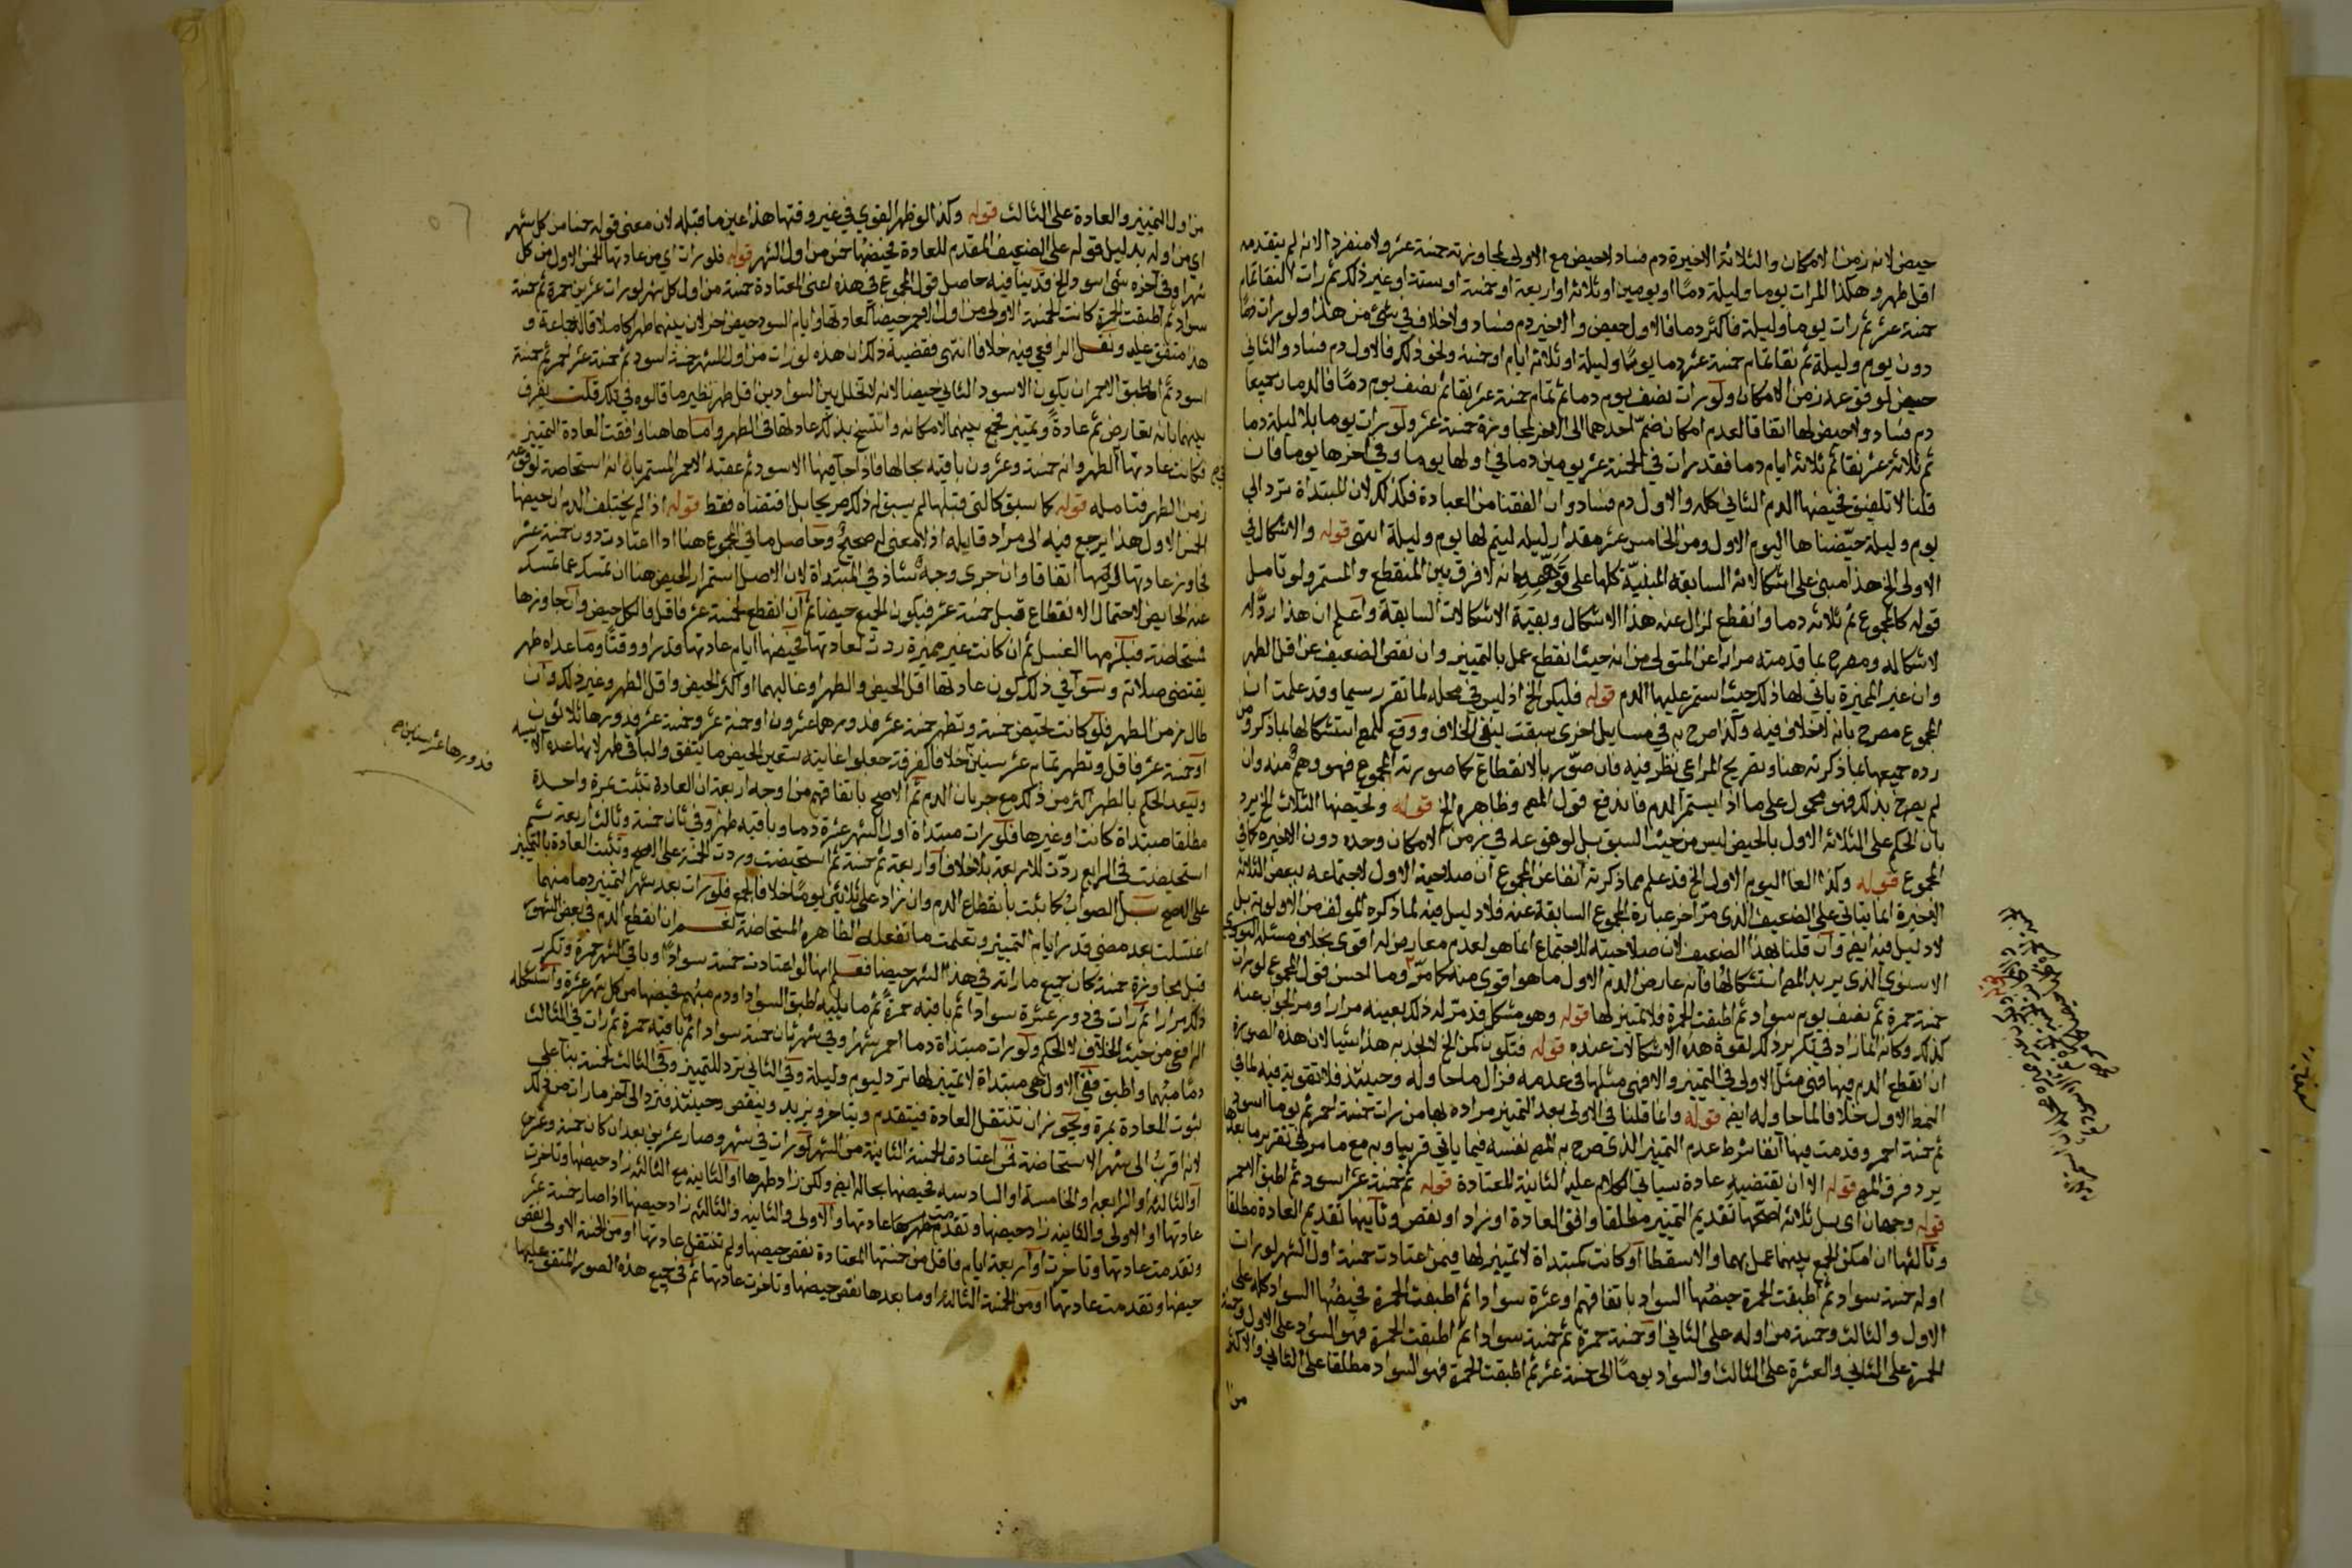 حيض لانه زمن الامكان والثلاثة الاخيرة دم فساد لاحيض مع الاولى لمجاوزته خمسة عشر ولا منفردا لانه لم يتقدمه
اقل طهر وهكذا المرات يوما وليلة دمًا او يومين او ثلاثة او اربعة او خمسة او ستة او غير ذلك ثم رات النقا تمام
خمسة عشر ثم رات يوما وليلة فاكثر دما فالاول حيض والاخير دم فساد ولا خلاف في شئ من هذا ولو رات دمًا
دون يوم وليلة ثم نقا تمام خمسة عشر دما يومًا وليلة او ثلاثة ايام او خمسة ونحو ذلك فالاول دم فساد والثاني
حيض لوقوعه زمن الامكان ولو رات نصف يوم دما ثم تمام خمسة عشر نقا ثم نصف يوم دمًا فالدمان جميعا
دم فساد ولا حيض لها اتفاقا لعدم امكان ضم احدهما الى الاخر لمجاوزة خمسة عشر ولو رات يوما بلا ليلة دما
ثم ثلاثة عشر نقا ثم ثلاثة ايام دما فقد رات في الخمسة عشر يومين دما في اولها يوما وفي اخرها يوما فان
قلنا لا تلفيق فحيضها الدم الثاني كله والاول دم فساد وان لفقنا من العبادة فكذلك لان المبتداة ترد الى
يوم وليلة حيّضناها اليوم الاول ومن الخامس عشر مقدار ليلة ليتم لها يوم وليلة انتهى قوله والاشكال في
الاولى الخ هذا مبني على اشكالاته السابقة المبنيّة كلها على انه لا فرق بين المنقطع والمستمر ولو تامل
قوله كالمجموع ثم ثلاثة دما وانقطع لزال عنه هذا الاشكال وبقية الاشكالات السابقة واعلم ان هذا ردٌّ له
لاشكاله ومصرح بما قدمته مرارا عن المتولي من انه حيث انقطع عمل بالتمييز وان نقص الضعيف عن اقل الطهر
وان غير المميزة ياتي لها ذلك حيث استمر عليها الدم قوله فليكن الخ اذ ليس في محله لما تقرر سيما وقد علمت ان
المجموع مصرح بانه لا خلاف فيه وكذا صرح به في مسايل اخرى سبقت بنفي الخلاف ووقع للمص استشكالها بما ذكر ومن
رده جميعها بما ذكرته هنا وتقريع المراعي نظر فيه فان صوّر بالانقطاع كما صورته المجموع فهو وهم منه وان
لم يصرح بذلك فهو محمول على ما اذا استمر الدم فاندفع قول المص وظاهره الخ قوله ونحيضها الثلاث الخ يرد
بان الحكم على الثلاثة الاول بالحيض ليس من حيث السبق بل لوقوعه في زمن الامكان وحده دون الاخيرة كما في
المجموع قوله وكذا الغا اليوم الاول الخ قد علم مما ذكرته آنفا عن المجموع ان صلاحية الاول لاجتماعه ببعض الثلاثة
الاخيرة انما يتاتى على الضعيف الذي مرّ اخر عبارة المجموع السابقة عنه فلا دليل فيه لما ذكره المولف من الاولوية بل
لا دليل فيه ايضم وان قلنا بهذا الضعيف لان صلاحيته للاجتماع انما هو لعدم معارض له اقوى بخلاف مسئلة النووي
الاسنوي الذي يريد المص استشكالها فانه عارض الدم الاول ما هو اقوى منه كما مرّ وما احسن قول المجموع لو رات
خمسة حمرة ثم نصف يوم سواد ثم اطبقت الحمرة فلا تمييز لها قوله وهو مشكل قد مرّ له ذلك بعينه مرارا ومر الجواب عنه
كذلك وكانه انما زاد في تكرير ذلك لقوة هذه الاشكالات عنده قوله فتكون كمن الخ لا نجد به هذا شيا لان هذه الصورة
ان انقطع الدم فيها فهي مثل الاولى في التمييز والا فهي مثلها في عدمه فزال ما حاوله وحينئذ فلا تقوية فيه لما في
النمط الاول خلافا لما حاوله ايض قوله وانما قلنا في الاولى بعد التمييز مراده بها من رات خمسة احمر ثم يوما اسود
ثم خمسة احمر وقدمت فيها آنفا شرط عدم التمييز الذي صرح به المص نفسه فيما ياتي قريبا وبه مع ما مر في تقرير ما بعدها
يرد فرق المص قوله الا ان يقتضيه عادة سياتي الكلام عليه الثانية للمعتادة قوله ثم خمسة عشر اسود ثم اطبق الاحمر
قوله وجهان اي بل ثلاثة اصحّها تقديم التمييز مطلقا وافق العادة او زاد او نقص وثانيها تقديم العادة مطلقا
وثالثها ان امكن الجمع بينهما عمل بهما والا سقطا او كانت كمبتداة لا تمييز لها فيمن اعتادت خمسة اول الشهر لو رات
اوله خمسة سواد ثم اطبقت الحمرة حيضُها السواد باتفاقهم او عشرة سوادا ثم اطبقت الحمرة فحيضُها السواد كله على
الاول والثالث وخمسة من اوله على الثاني او خمسة حمرة ثم خمسة سوادا ثم اطبقت الحمرة فهو السواد على الاول وخمسة
الحمرة على الثاني والعشرة على الثالث او السواد يومًا الى خمسة عشر ثم اطبقت الحمرة فهو السواد مطلقا على الثاني والاكثر
من
من اول التمييز والعادة على الثالث قوله وكذا لو ظهر القوي في غير وقتها هذا عين ما قبله لان معنى قوله خمسا من كل شهر
اي من اوله بدليل قوله على الضعيف المقدم للعادة تحيضها خمس من اول الشهر قوله فلو رات اي من عادتها الخمس الاول من كل
شهر او في آخره شئ اسود الخ قد بينا فيه حاصل قول المجموع في هذه اعني المعتادة خمسة من اول كل شهر لو رات عشرين حمرة ثم خمسة
سواد ثم اطبقت الحمرة كانت الخمسة الاولى من اول الاحمر حيضا للعادة لها وايام السود حيض اخر لان بينهما طهرا كاملا قاله جماعة و
هذا متفق عليه ونقل الرافعي فيه خلافا انتهى فقضية ذلك ان هذه لو رات من اول الشهر خمسة اسود ثم خمسة عشر احمر ثم خمسة
اسود ثم اطبق الاحمر ان يكون الاسود الثاني حيضا لانه لا تخلل بين السوادين اقل طهر نظير ما قالوه في ذلك قلت يفرق
بينهما بانه تعارض ثم عادةً وتمييز فجمع بينهما لامكانه وانتسخ بذلك عادتها في الطهر واما هاهنا وافقت العادة التمييز
فكانت عادتها الطهر وانه خمسة وعشرون باقية بحالها فاذا جا فيها الاسود ثم عقبه الاحمر المستمر بان انه استحاضة لوقوعه
زمن الطهر فتامله قوله كما سبق كالتي قبلها لم يسبق له ذلك صريحا بل اقتضاه فقط قوله اذا لم يختلف الدم ان حيضها
الخمس الاول هذا يرجع فيه الى مراد قايله اذ لا معنى له صحيحٌ وحاصل ما في المجموع هنا اذا اعتادت دون خمسة عشر
فجاوز عادتها اتفاقا وان جرى وجه شاذ في المبتداة لان الاصل استمرار الحيض هنا ان تمسك عما تمسك
عنه الحايض لاحتمال الانقطاع قبل خمسة عشر فيكون الجميع حيضا ثم ان انقطع لخمسة عشر فاقل فالكل حيض وان جاوزها
فمستحاضة فيلزمها الغسل ثم ان كانت غير مميزة ردت لعادتها فحيضها ايام عادتها قدرا ووقتًا وما عداه طهر
يقتضى صلاته وسوآ في ذلك كون عادتها اقل الحيض والطهر او غالبهما او اكثر الحيض واقل الطهر وغير ذلك وان
طال زمن الطهر فلو كانت تحيض خمسة وتطهر خمسة عشر فدورهما عشرون او خمسة عشر وخمسة عشر فدورها ثلاثون
او خمسة عشر فاقل وتطهر تمام عشر سنين خلافا لفرقة جعلوا غايته تسعين الحيض ما يتفق والباقي طهر لانها عدة الآيسة
وليبعد الحكم بالطهر اكثر من ذلك مع جريان الدم ثم الاصح باتفاقهم من اوجه اربعة ان العادة تثبت بمرة واحدة
مطلقا مبتداة كانت او غيرها فلو رات مبتداة اول الشهر عشرة دما وباقيه طهرا وفي ثان خمسة وثالث اربعة ثم
استحيضت في الرابع ردّت للاربعة بلا خلاف او اربعة ثم خمسة ثم استحيضت وردت الخمسة على الاصح وتثبت العادة بالتمييز
على الاصح بل الصواب كما ثبت بانقطاع الدم وان زاد على ثلاثين يومًا خلافا لجمع فلو رات بعد شهر التمييز دما مبهما
اغتسلت بعد مضي قدر ايام التمييز وتعلمت ما تفعله الطاهرة المستحاضة نعم ان انقطع الدم في بعض الشهور
قبل مجاوزة خمسة كان جميع ما راته في هذا الشهر حيضا فعلم انها لو اعتادت خمسة سوادًا وباقي الشهر حمرة وتكرر
ذلك مرارا ثم رات في دور عشرة سوادا ثم باقيه حمرةً ثم ما يليه اطبق السواد او دم مبهم فحيضها من كل شهر عشرة واشكله
الرافعي من حيث الخلاف لا الحكم ولو رات مبتداة دما احمر شهرا وفي شهر ثان خمسة سوادا ثم باقيه حمرة ثم رات في الثالث
دمًا مبهما واطبق ففي الاول هي مبتداة لا تمييز لها ترد ليوم وليلة وفي الثاني ترد للتمييز وفي الثالث لخمسة بنآ على
ثبوت العادة بمرة ويجوز ان تنتقل العادة فيتقدم ويتاخر ويزيد وينقص وحينئذ فترد الى آخر ما رات من ذلك
لانه اقربُ الى شهر الاستحاضة فمن اعتادت الخمسة الثانية من الشهر لو رات في شهر وصار عشرين بعد ان كان خمسة وعشرين
او الثالثة او الرابعة او الخامسة او السادسة فحيضها بحاله ايض ولكن زاد طهرها او الثانية مع الثالثة زاد حيضها وتاخرت
عادتها او الاولى والثانية زاد حيضها وتقدمت عادتها والاولى والثانية والثالثة زاد حيضها اذا صار خمسة عشر
وتقدمت عادتها وتاخرت او اربعة ايام فاقل من خمستها المعتادة نقص حيضها ولم تنتقل عادتها او من الخمسة الاولى نقص
حيضها وتقدمت عادتها او من الخمسة الثالثة او ما بعدها نقص حيضها وتاخرت عادتها ثم في جميع هذه الصور المتفق عليها
فدورها عشر سنين صح